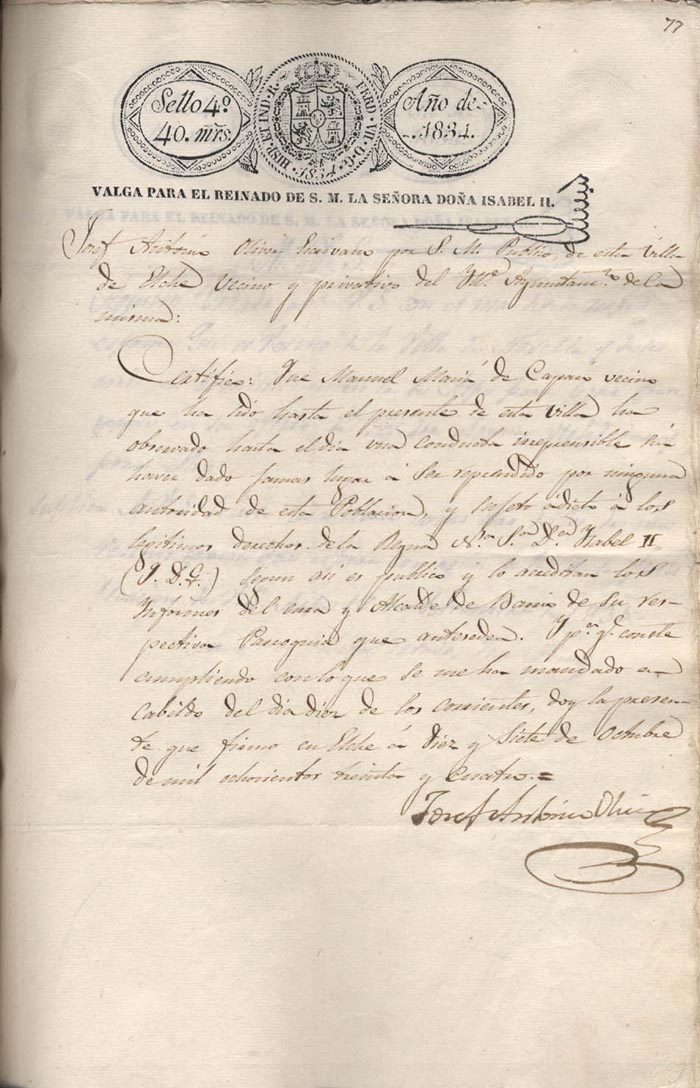 77
Sello 4º
40. mrs.
HISP. ET IND. R. FERD. VII. D. G. 1834
Año de
1834.
VALGA PARA EL REINADO DE S. M. LA SEÑORA DOÑA ISABEL II.
Josef Antonio Oliver Escrivano por S. M. Publico, de esta Villa
de Elche Vecino y privativo del Ille. Ayuntam.to de la
misma:
Certifico: Que Manuel Mariá de Caparó vecino
que ha sido hasta el presente de esta Villa ha
observado hasta el dia una conducta irreprensible sin
haver dado jamas lugar á ser reprendido por ninguna
autoridad de esta Poblacion, y sujeto ádicto á los
legitimos derechos de la Reyna Nra. S.ra D.ña Ysabel II
(Q. D. G.) segun asi es publico y lo acreditan los
Ynformes del cura y Alcalde de Barrio de su res-
pectiva Parroquia que anteceden. Y p.a q.e conste
cumpliendo con lo que se me ha mandado en
Cabildo del dia diez de los corrientes, doy la presen-
te que firmo en Elche á Diez y Siete de Octubre
de mil ochocientos treinta y cuatro.=
Josef Antonio Oliver